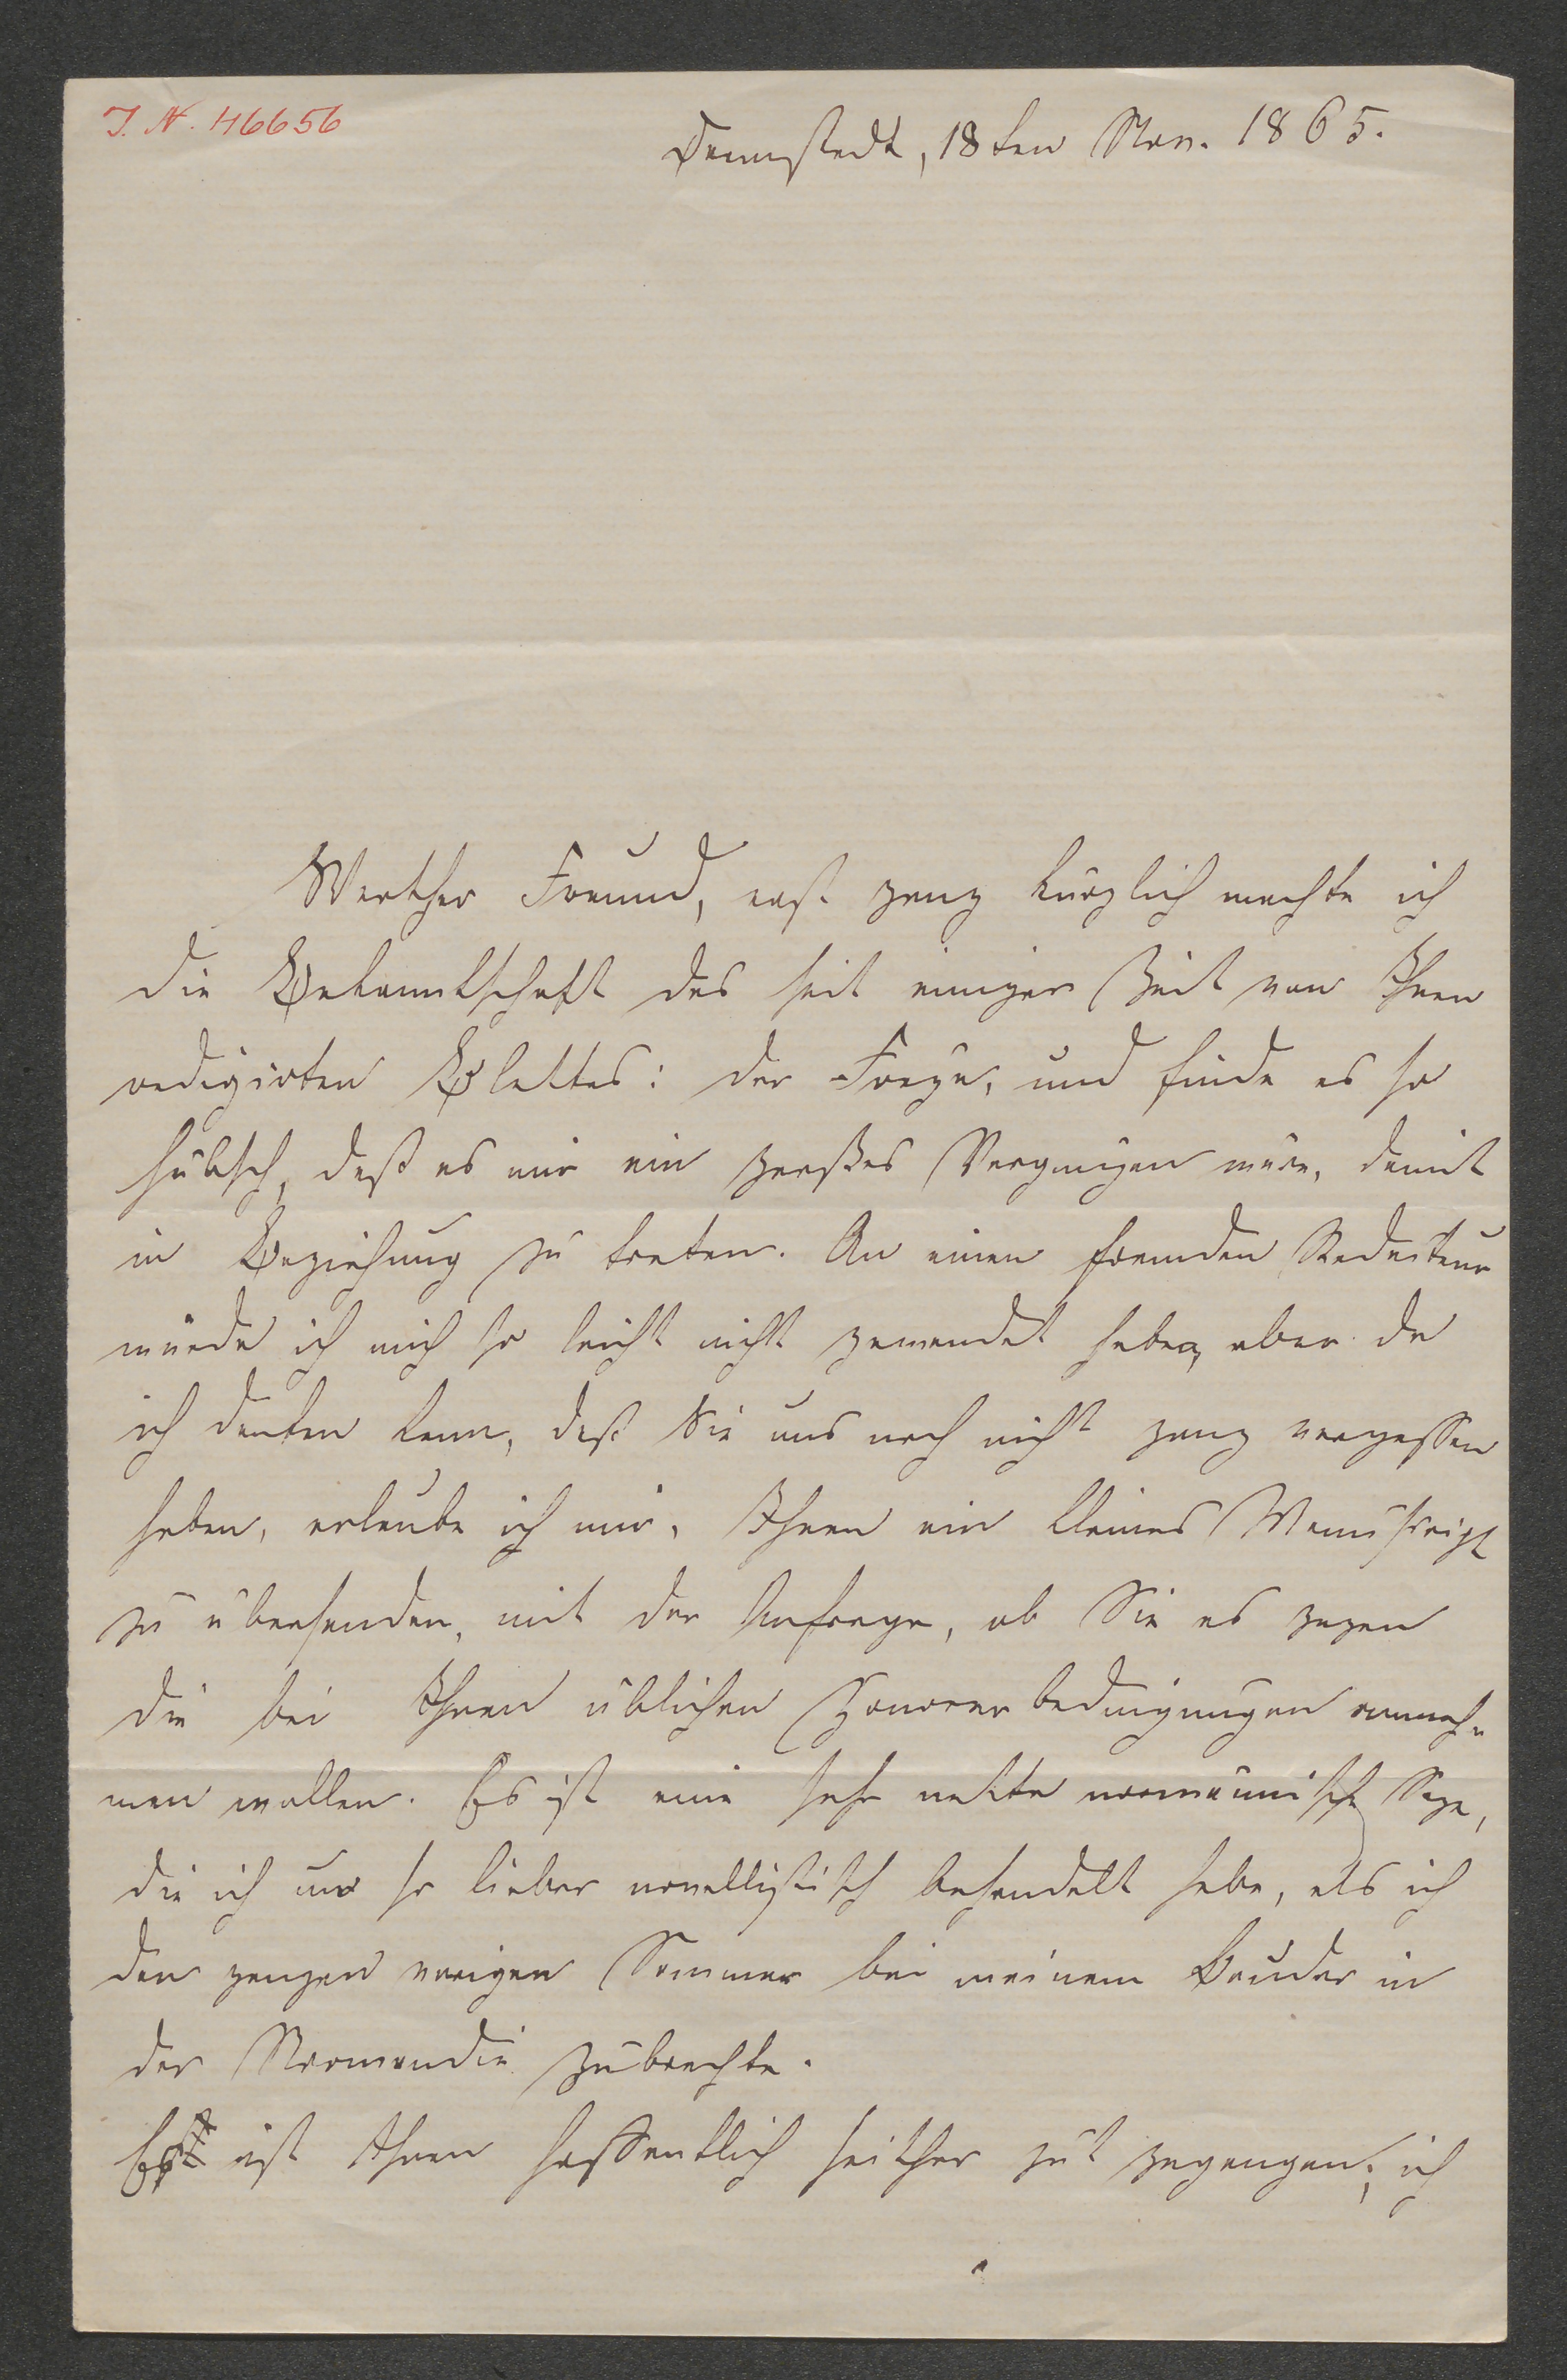 I. N. 46656
Darmstadt, 18ten Nov. 1865.
Werther Freund, erst ganz kürzlich machte ich
die Bekanntschaft des seit einiger Zeit von Ihnen
redigirten Blattes: der Freya, und finde es so
hübsch, daß es mir ein großes Vergnügen wäre, damit
in Beziehung zu treten. An einen fremden Redacteur
würde ich mich so leicht nicht gewendet haben, aber da
ich denken kann, daß Sie uns noch nicht ganz vergessen
haben, erlaube ich mir, Ihnen ein kleines Manuskript
zu übersenden, mit der Anfrage, ob Sie es gegen
die bei Ihnen üblichen Honorarbedingungen anneh-
men wollen. Es ist eine sehr nette normännische Sage,
die ich um so lieber novellistisch behandelt habe, als ich
den ganzen vorigen Sommer bei meinem Bruder in
der Normandie zubrachte.
Es ist Ihnen hoffentlich seither gut gegangen; ich